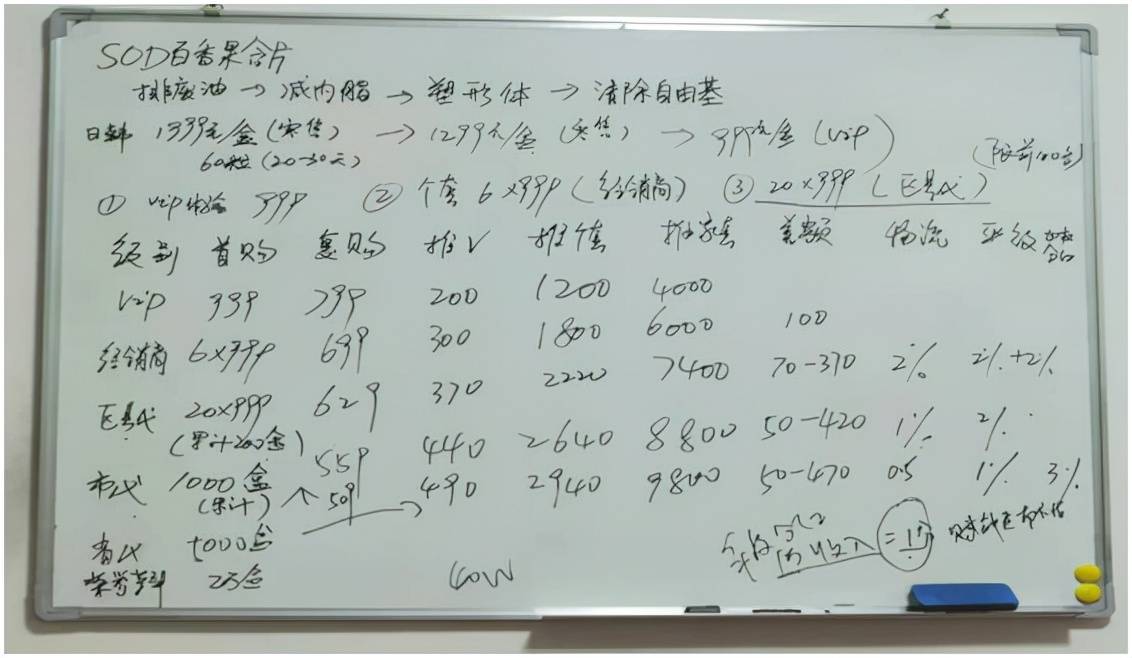 SOD百香果含片
排废油→减内脂→塑形体→清除自由基
日韩 1399元/盒(零售)→1299元/盒(零售)→999元/盒(vip)
60粒(20-30天) (限前100名)
① vip体验 999 ② 个套 6×999(经销商) ③ 20×999(区县代)
级别 首购 复购 推V 推个套 推家套 差额 物流 平级
Vip 999 799 200 1200 4000
经销商 6×999 699 300 1800 6000 100
区县代 20×999 629 370 2220 7400 70-370 2% 2%+2%
(累计200盒)
市代 1000盒 559 440 2640 8800 50-420 1% 2%
(累计) 509 490 2940 9800 50-470 0.5 1% 3%
省代 5000盒
荣誉董事 2万盒 60W
1份收入=1份